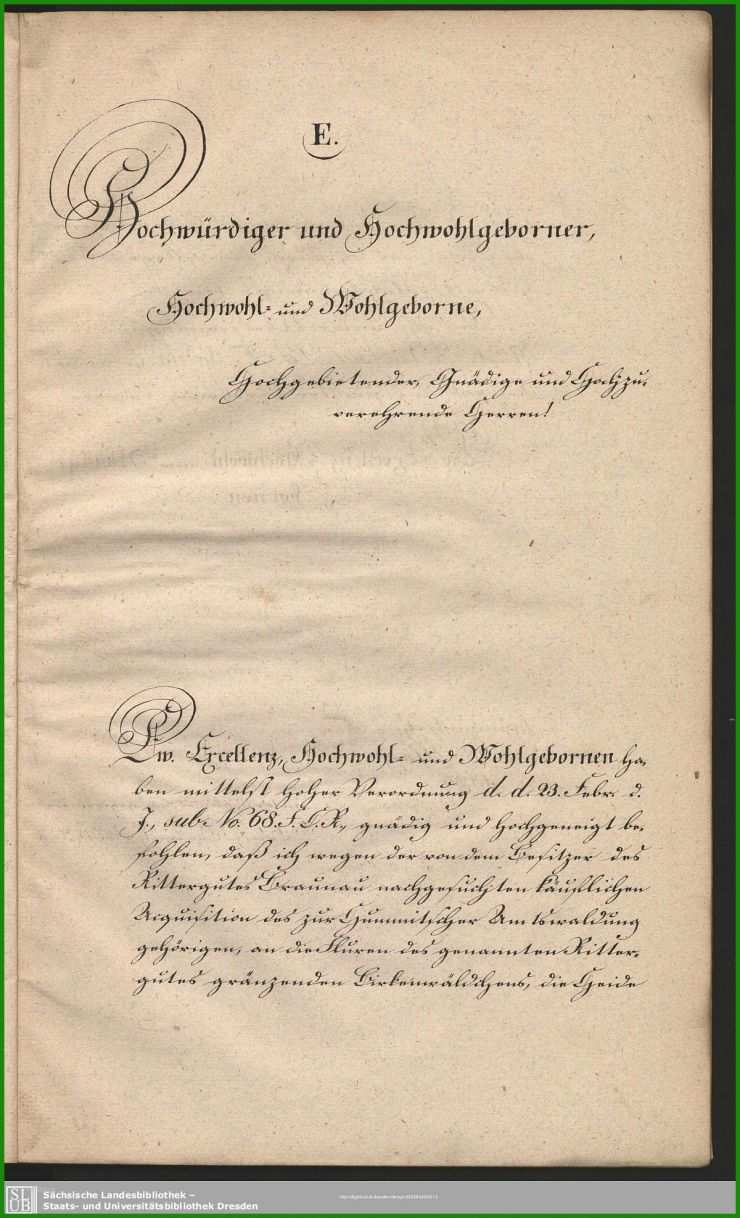 E.
Hochwürdiger und Hochwohlgeborner,
Hochwohl- und Wohlgeborne,
Hochgebietender, Gnädige und Hochzu-
verehrende Herren!
Ew. Excellenz, Hochwohl- und Wohlgebornen ha-
ben mittelst hoher Verordnung d. d. 23. Febr. d.
J., sub No. 68. F. C. R., gnädig und hochgeneigt be-
fohlen, daß ich wegen der von dem Besitzer des
Rittergutes Braunau nachgesuchten käuflichen
Acquisition des zur Hummitscher Amtswaldung
gehörigen, an die Fluren des genannten Ritter-
gutes gränzenden Birkenwäldchens, die Heide
SLUB
Sächsische Landesbibliothek –
Staats- und Universitätsbibliothek Dresden